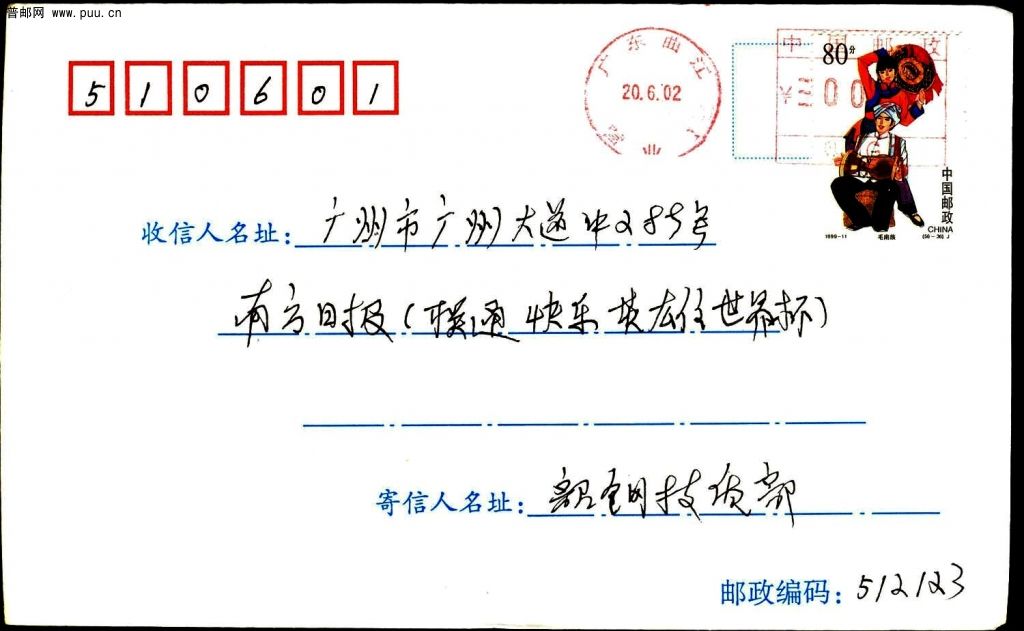 普邮网 www.puu.cn
510601
广东曲江
20.6.02
营业
中国邮政
80分
00
中国邮政
CHINA
1999-11 毛南族 (56-36) J
收信人名址：广州市广州大道中289号
南方日报（联通快乐英雄侃世界杯）
寄信人名址：韶钢技质部
邮政编码：512123